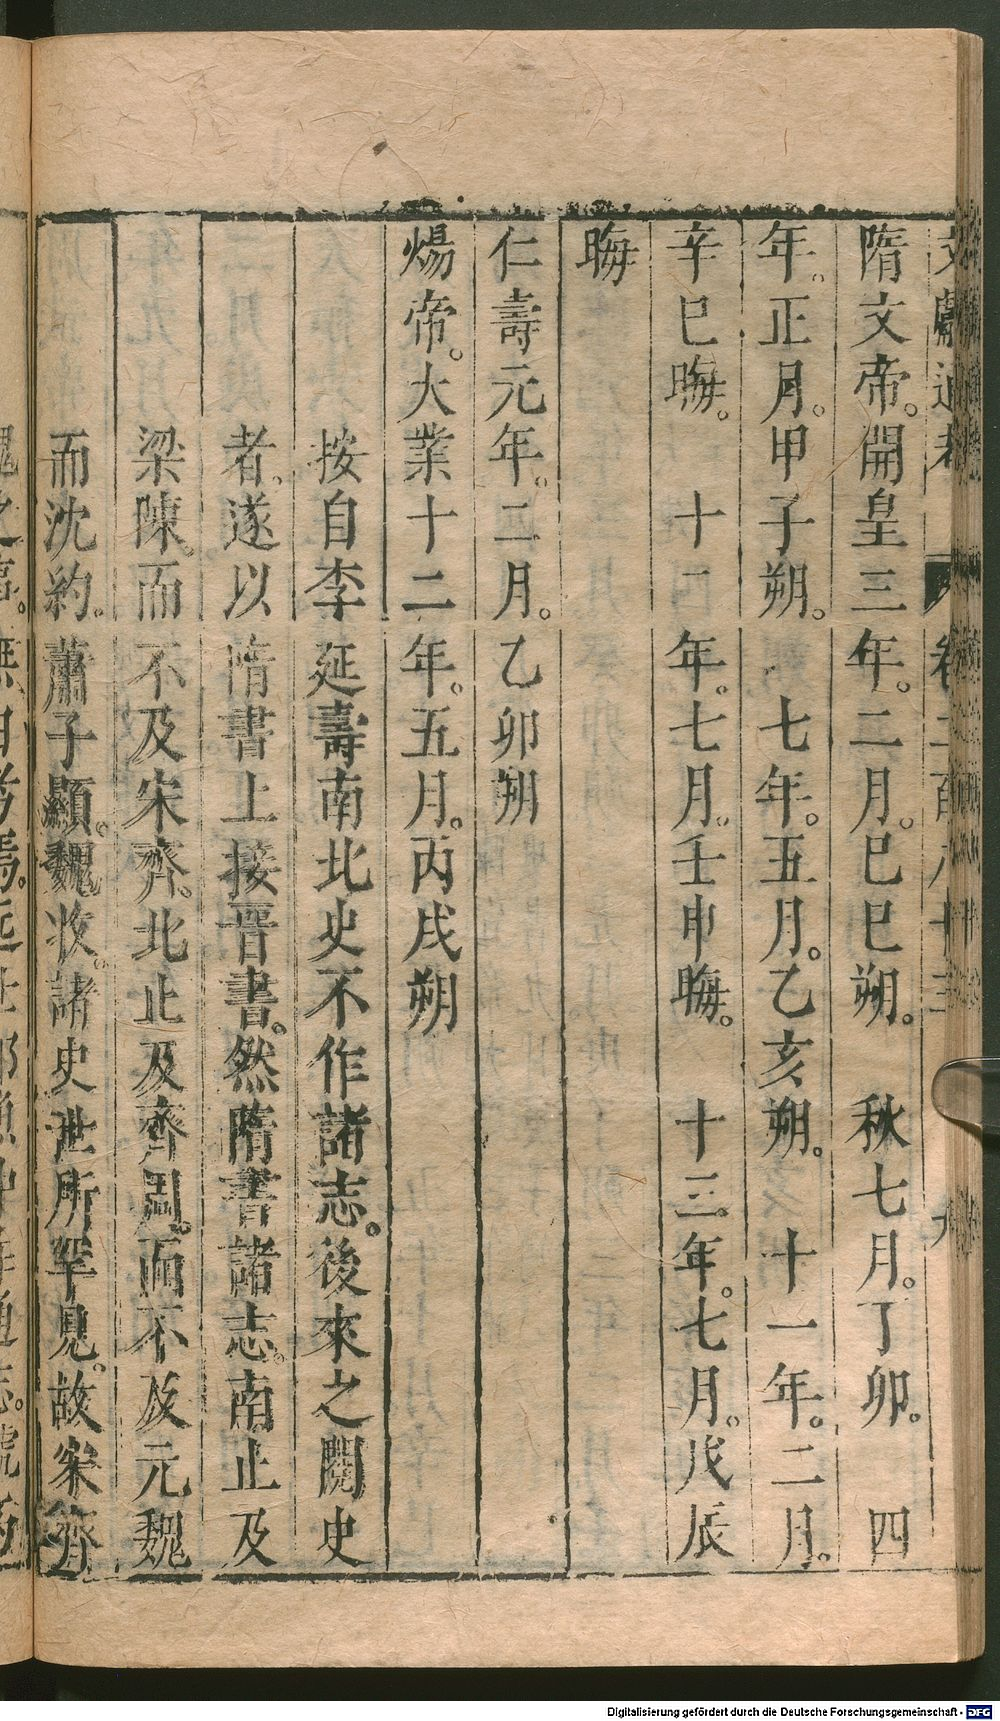 文獻通考 卷二百八十三 九
隋文帝。開皇三年。二月。巳巳朔。 秋七月。丁卯。 四
年。正月。甲子朔。 七年。五月。乙亥朔。 十一年。二月。
辛巳晦。 十二年。七月。壬申晦。 十三年。七月。戊辰
晦
仁壽元年。二月。乙卯朔
煬帝。大業十二年。五月。丙戌朔
按自李延壽南北史不作諸志。後來之閱史
者。遂以隋書上接晉書。然隋書諸志。南止及
梁陳。而不及宋齊。北止及齊周。而不及元魏
而沈約。蕭子顯。魏收。諸史世所罕見。故宋齊
Digitalisierung gefördert durch die Deutsche Forschungsgemeinschaft - DFG